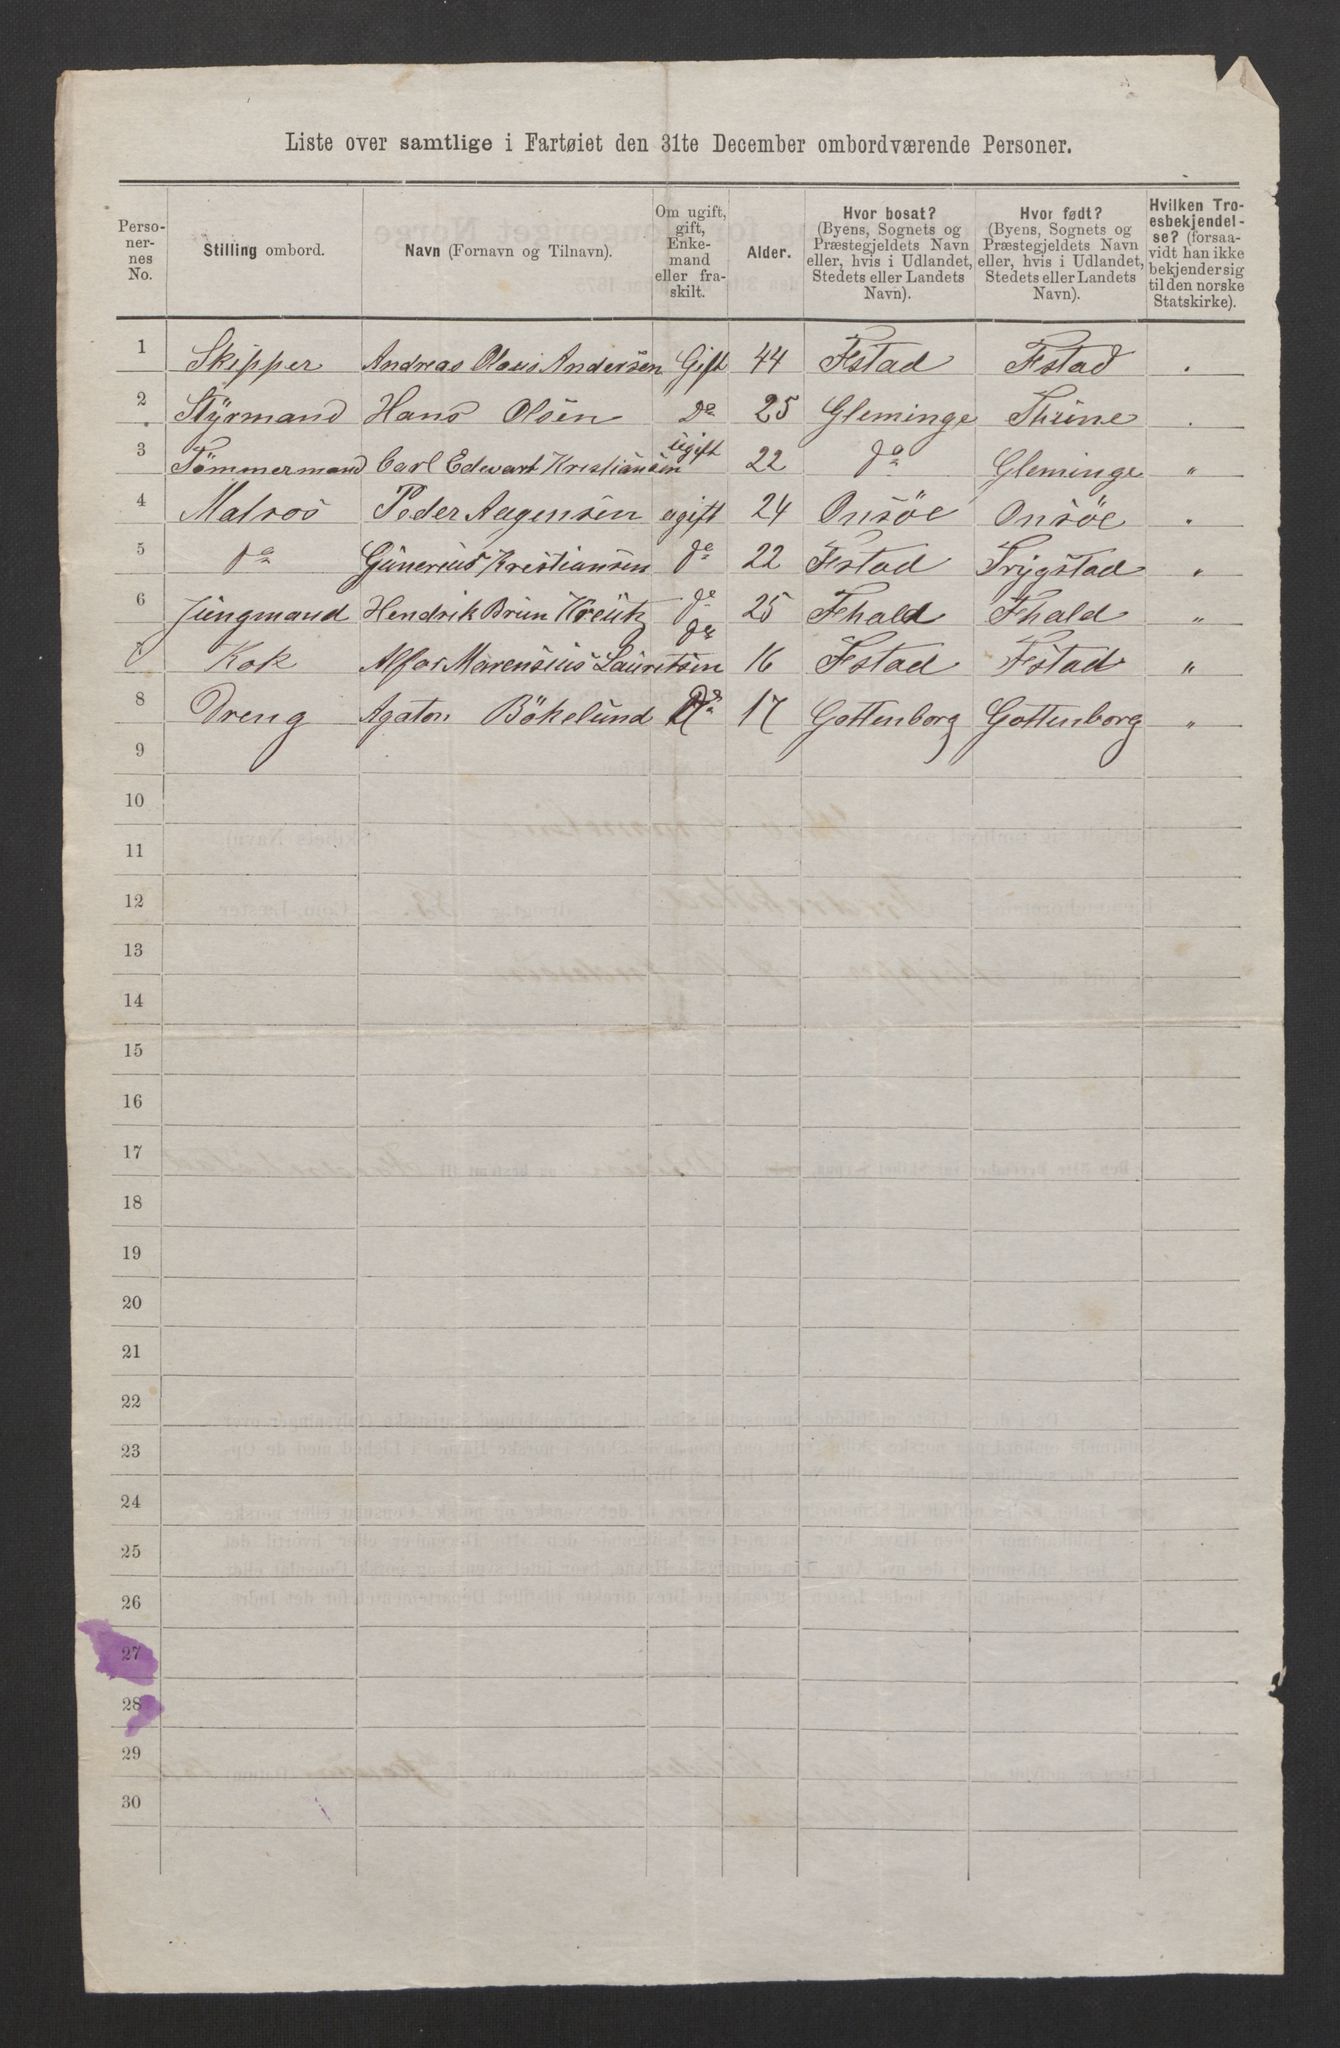 Liste over samtlige i Fartøiet den 31te December ombordværende Personer.
Perso-
ner-
nes
No.
Stilling ombord.
Navn (Fornavn og Tilnavn).
Om ugift,
gift,
Enke-
mand
eller fra-
skilt.
Alder.
Hvor bosat?
(Byens, Sognets og
Præstegjeldets Navn
eller, hvis i Udlandet,
Stedets eller Landets
Navn).
Hvor født?
(Byens, Sognets og
Præstegjeldets Navn
eller, hvis i Udlandet,
Stedets eller Landets
Navn).
Hvilken Tro-
esbekjendel-
se? (forsaa-
vidt han ikke
bekjender sig
til den norske
Statskirke).
1 Skipper Andreas Olaus Andersen Gift 44 Fstad Fstad .
2 Styrmand Hans Olsen Do 25 Gleminge Thune .
3 Tömmermand Carl Edwart Kristiansen ugift 22 do Gleminge "
4 Matros Peder Aagensen ugift 24 Onsöe Onsöe "
5 do Gunerius Kristiansen do 22 Fstad Trygstad "
6 Jungmand Hendrik Brun Kreutz do 25 Fhald Fhald "
7 Kok Alfar Marensius Lauretsen do 16 Fstad Fstad "
8 Dreng Agaton Bökelund Do 17 Gottenborg Gottenborg "
9
10
11
12
13
14
15
16
17
18
19
20
21
22
23
24
25
26
27
28
29
30